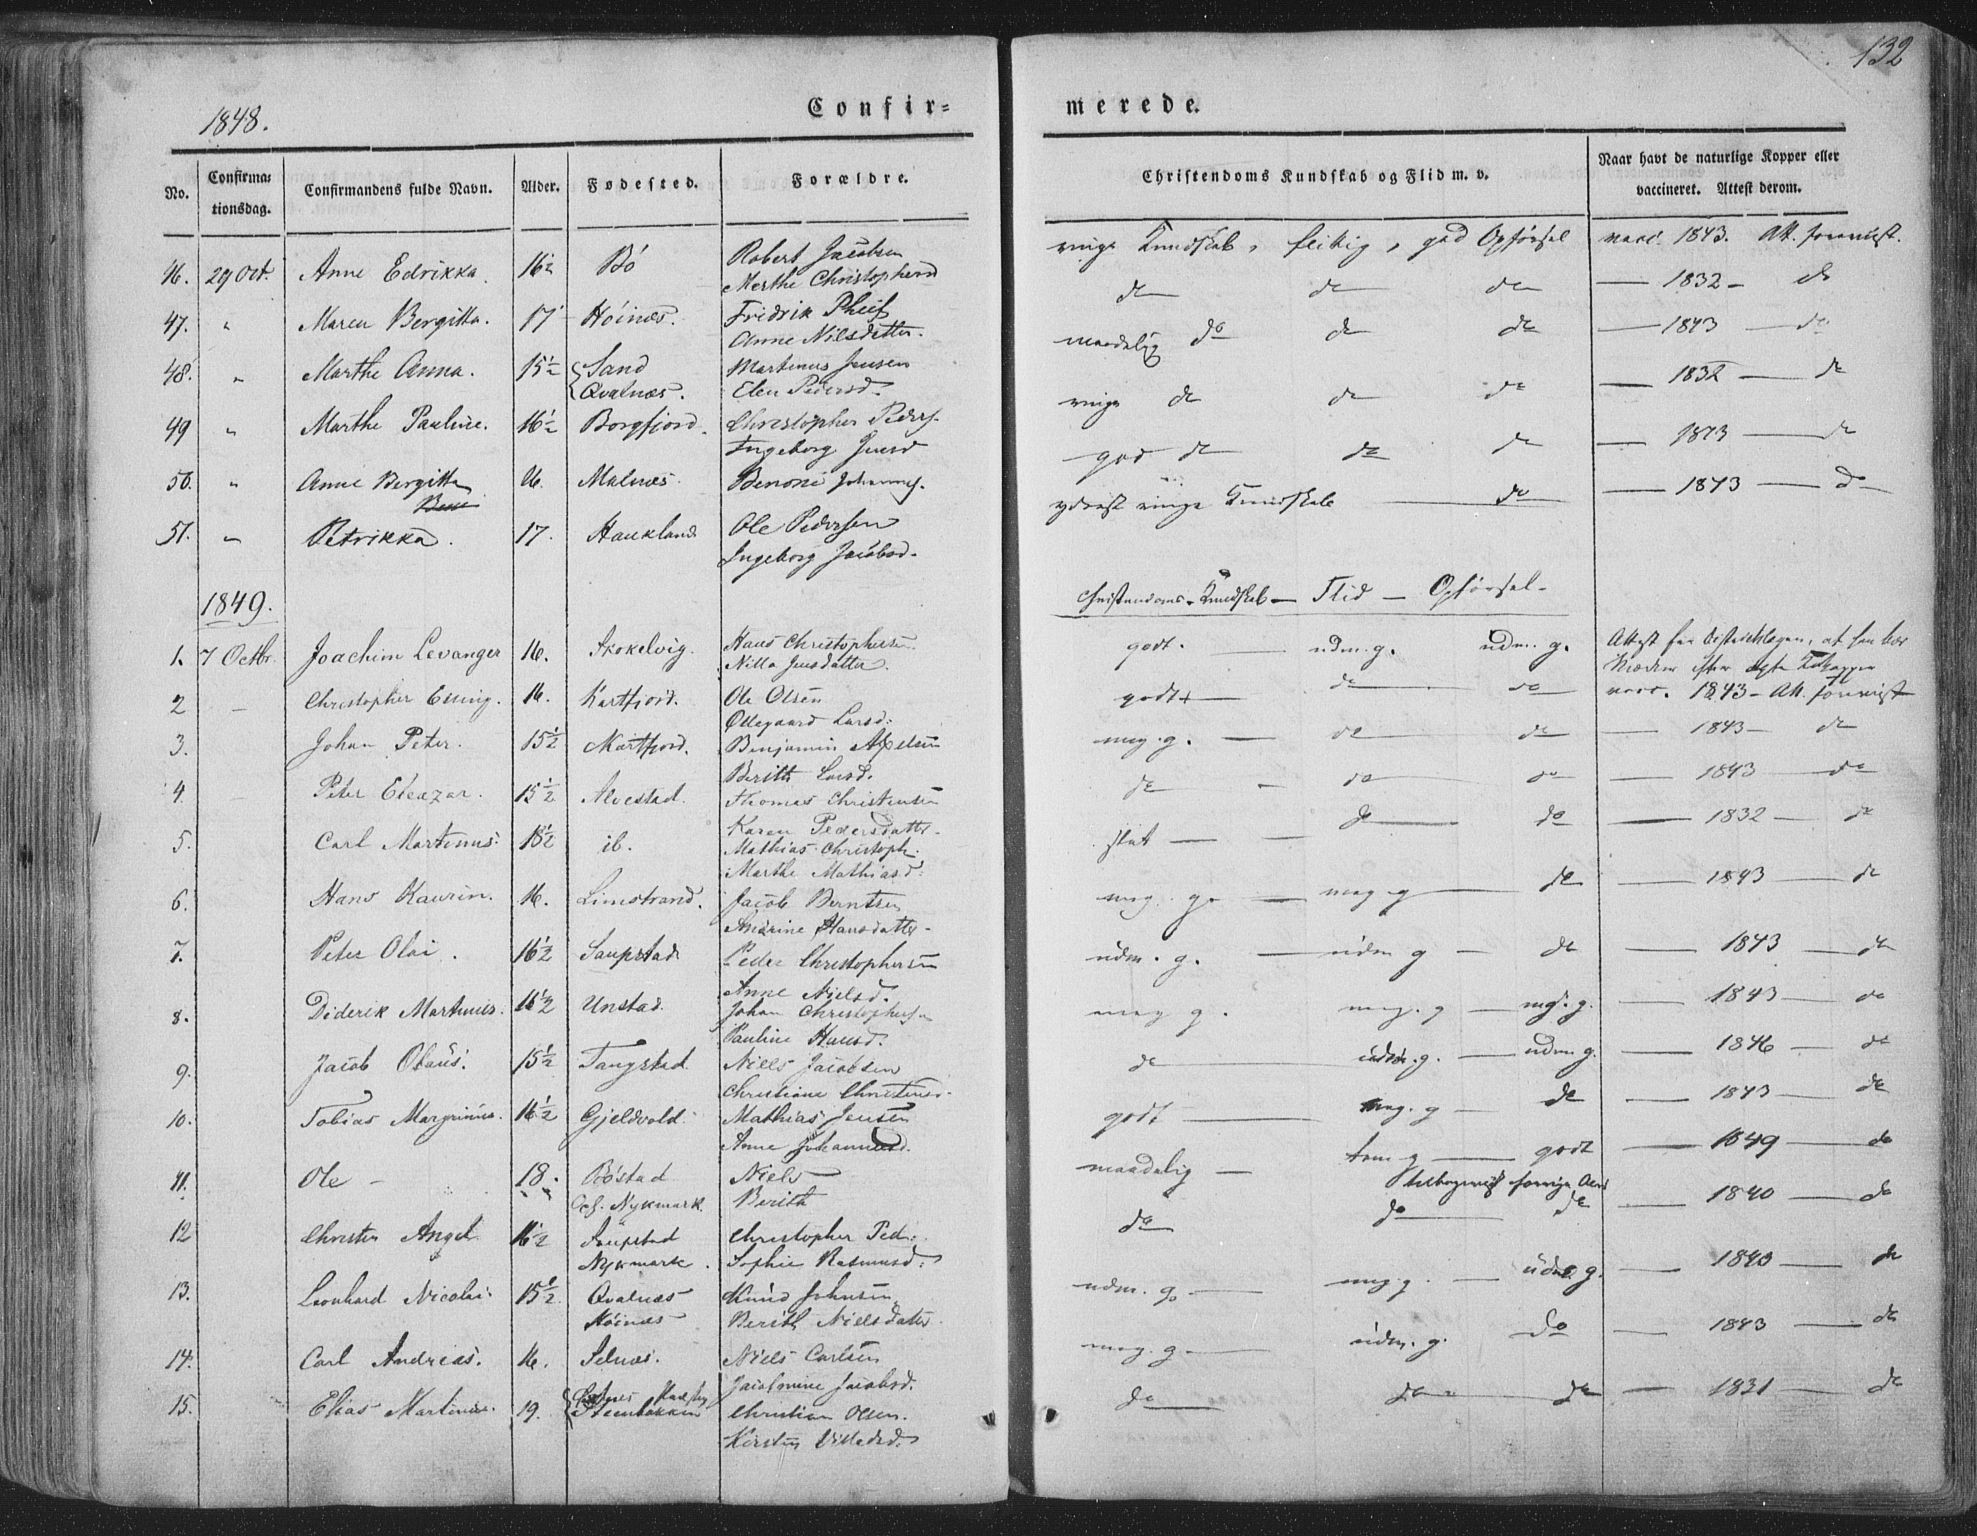 132
1848.
Confir=
merede.
No.
Confirma=
tionsdag.
Confirmandens fulde Navn.
Alder.
Fødested.
Forældre.
Christendoms Kundskab og Flid m. v.
Naar havt de naturlige Kopper eller
vaccineret. Attest derom.
46. 29 Oct. Anne Edrikka. 16½ Bö Robert Jacobsen ringe Kundskab, flittig, god Opförsel vacc. 1843. Att. foreviist.
Merthe Christophersd
47. " Maren Bergitta. 17 Höinæs. Fridrik do do do — 1832 — do
Anne Nilsdatter.
48. " Marthe Anna. 15½ Sand Martinus Jensen maadelig do do do — 1843 — do
Qvalnæs. Elen Pedersd.
49 " Marthe Pauline. 16½ Borgfjord. Christopher Peders. ringe do do do — 1832 — do
Ingeborg Jensd
50. " Anne Bergitta 16. Malnæs. Benoni Johannes. god do do do — 1843 — do
51. " Petrikka. 17. Haukland Ole Pedersen yderst ringe Kundskab — do — 1843 — do
Ingeborg Jacobsd.
1849.
Christendoms-Kundskab — Flid — Opförsel.
1. 7 Octbr. Joachim Levanger 16. Skokelvig. Hans Christophersen godt. — udm. g. udm. g. Attest fra
Nilla Jensdatter.
2 — Christopher Elling. 16. Kartfjord. Ole Olsen godt — do — do vacc. 1843 — Att. foreviist
Ollegaard Larsd.
3. Johan Peter. 15½ Nartfjord. Benjamin Axelsen meg. g. — do do — 1843 — do
Berith Larsd.
4. Peter Eleazar. 15½ Alvestad. Thomas Christensen do - do do — 1843 — do
Karen Pedersdatter.
5. Carl Martinus. 18½ ib. Mathias Christoph. slet — do — do — 1832 — do
Marthe Mathiasd.
6. Hans Kaurin. 16. Limstrand. Jacob Berntsen meg. g. — meg g — do — 1843 — do
Andrine Hansdatter.
7. Peter Olai. 16½ Saupstad Peder Christophersen udm. g. — udm g — do — 1843 — do
Anne Nielsd.
8. Diderik Martinus. 16½ Unstad. Johan Christophers. meg g. meg. g — meg. g. — 1843 — do
Pauline Hansd.
9. Jacob Olaus. 15½ Tangstad. Niels Jacobsen do udm. g. — udm. g. — 1846 — do
Christiane Christensd.
10. Tobias Margrinus. 16½ Gjeldvold. Mathias Jensen godt — meg. g — do — 1843 — do
Anne Johannesd.
11. Ole — 18. Böstad Niels maadelig — tem g — godt — 1849 — do
Nykmark. Berith
12 Christen Angel 16½ Saupstad Christopher Ped. do do do — 1840 — do
Nykmark. Sophie Rasmusd.
13. Leonhard Nicolai. 15½ Qvalnæs Knud Johnsen udm. g. — meg. g. — udm. g. — 1843 — do
Höinæs Berith Nielsdatter
14. Carl Andreas. 16. Selnæs. Niels Carlsen meg. g. — udm. g. do — 1843 — do
Jacobmine Jacobsd.
15. Elias Martinus. 19. Steenbakken Christian Olsen. do do — do — 1831 — do
Kirsten Villadsd.